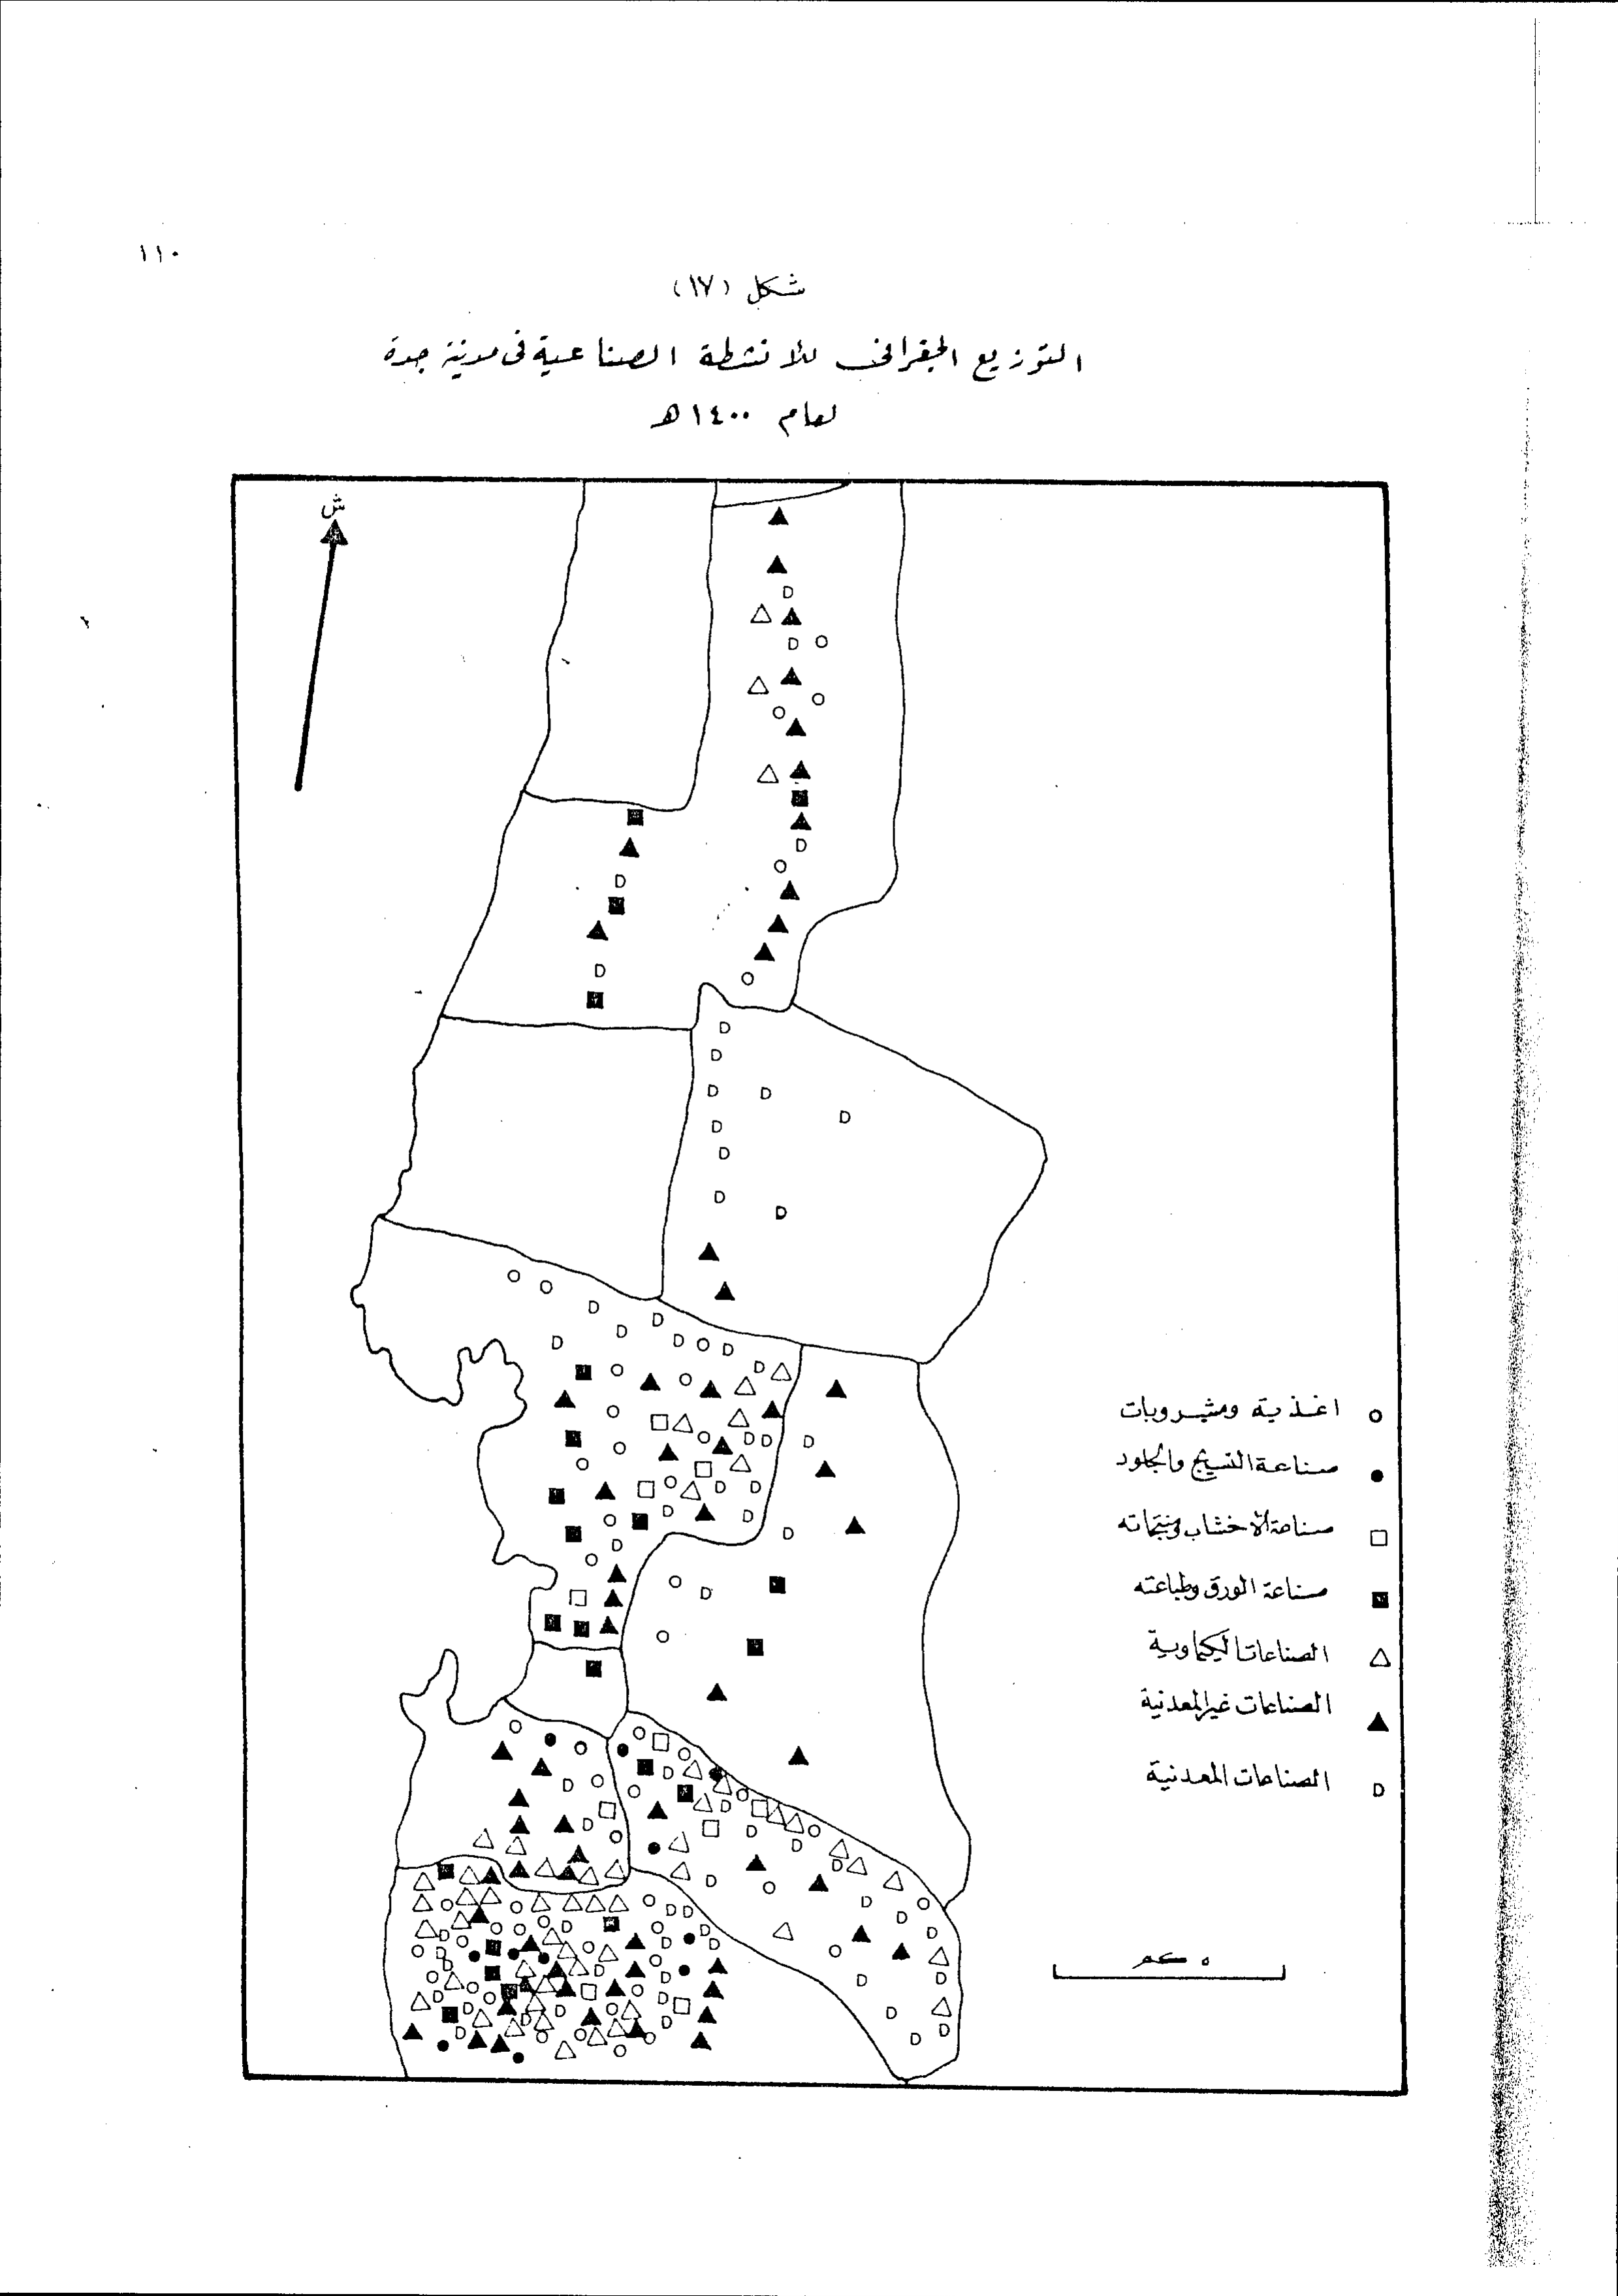 ١١٠
شكل (١٧)
التوزيع الجغرافى للأنشطة الصناعية فى مدينة جدة
لعام ١٤٠٠هـ
ش
اغذية ومشروبات
صناعة النسيج والجلود
صناعة الأخشاب ومنتجاته
صناعة الورق وطباعته
الصناعات الكيماوية
الصناعات غير المعدنية
الصناعات المعدنية
٥ كم